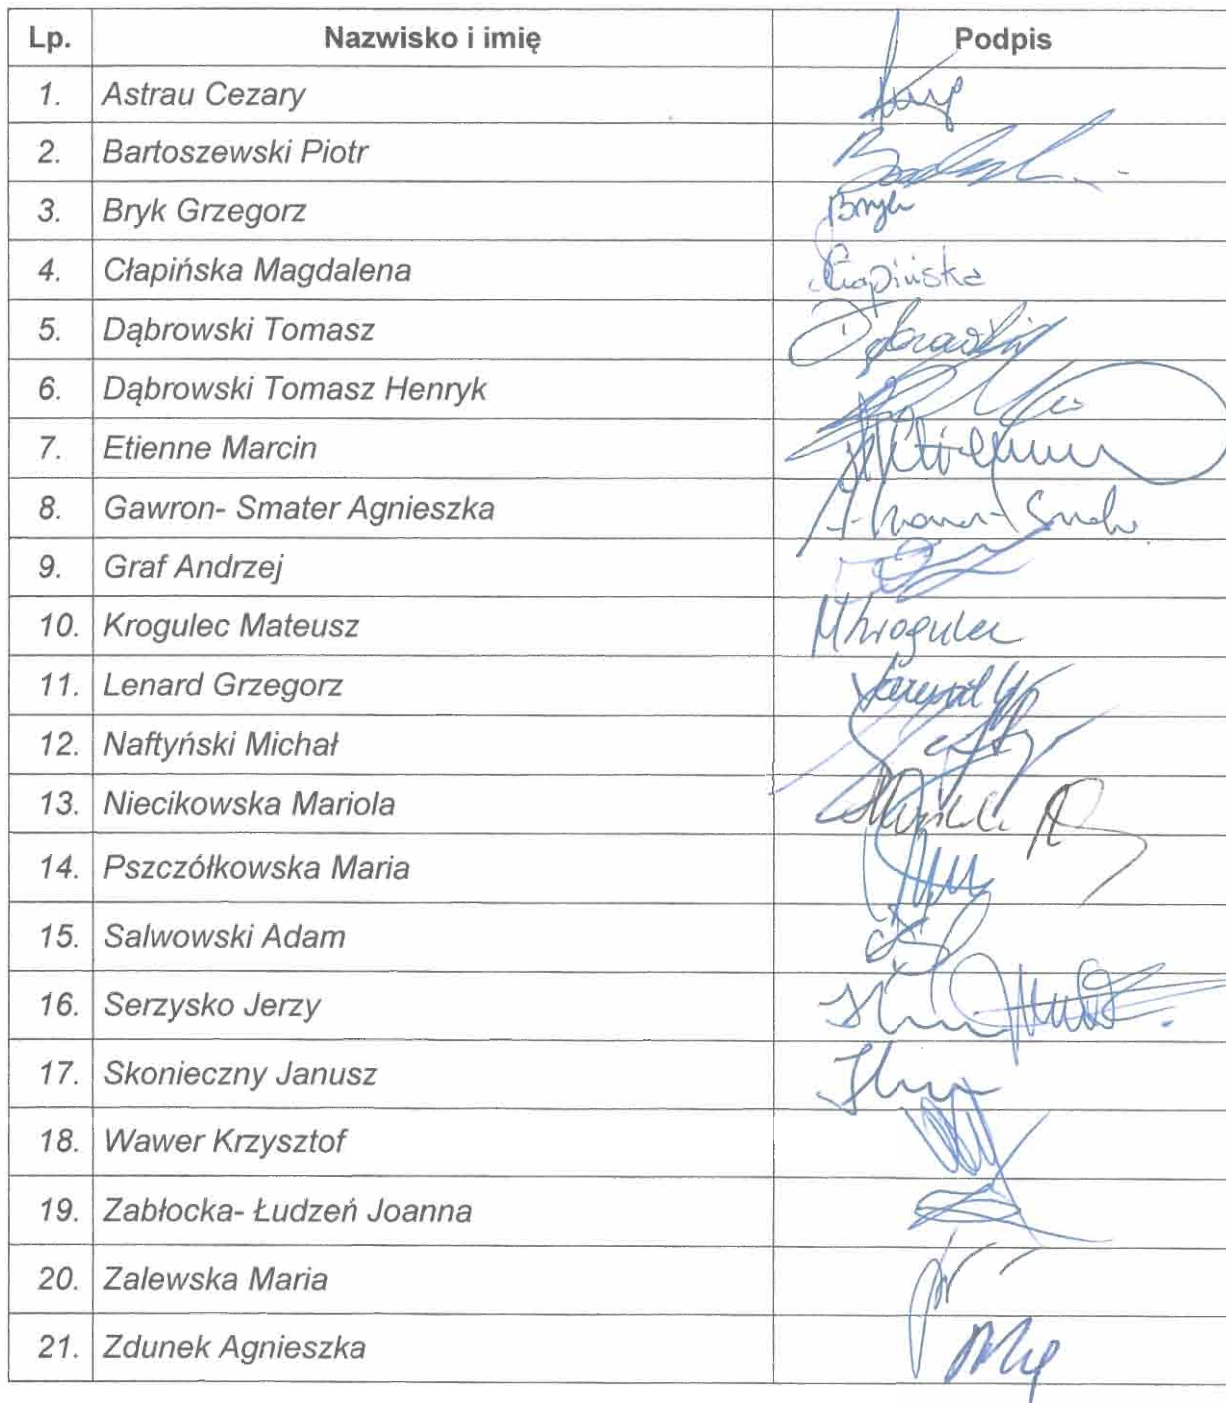 Lp. Nazwisko i imię Podpis
1. Astrau Cezary
2. Bartoszewski Piotr
3. Bryk Grzegorz Bryk
4. Cłapińska Magdalena Cłapińska
5. Dąbrowski Tomasz Dąbrowski
6. Dąbrowski Tomasz Henryk
7. Etienne Marcin
8. Gawron- Smater Agnieszka
9. Graf Andrzej
10. Krogulec Mateusz MKrogulec
11. Lenard Grzegorz
12. Naftyński Michał
13. Niecikowska Mariola
14. Pszczółkowska Maria
15. Salwowski Adam
16. Serzysko Jerzy
17. Skonieczny Janusz
18. Wawer Krzysztof
19. Zabłocka- Łudzeń Joanna
20. Zalewska Maria
21. Zdunek Agnieszka